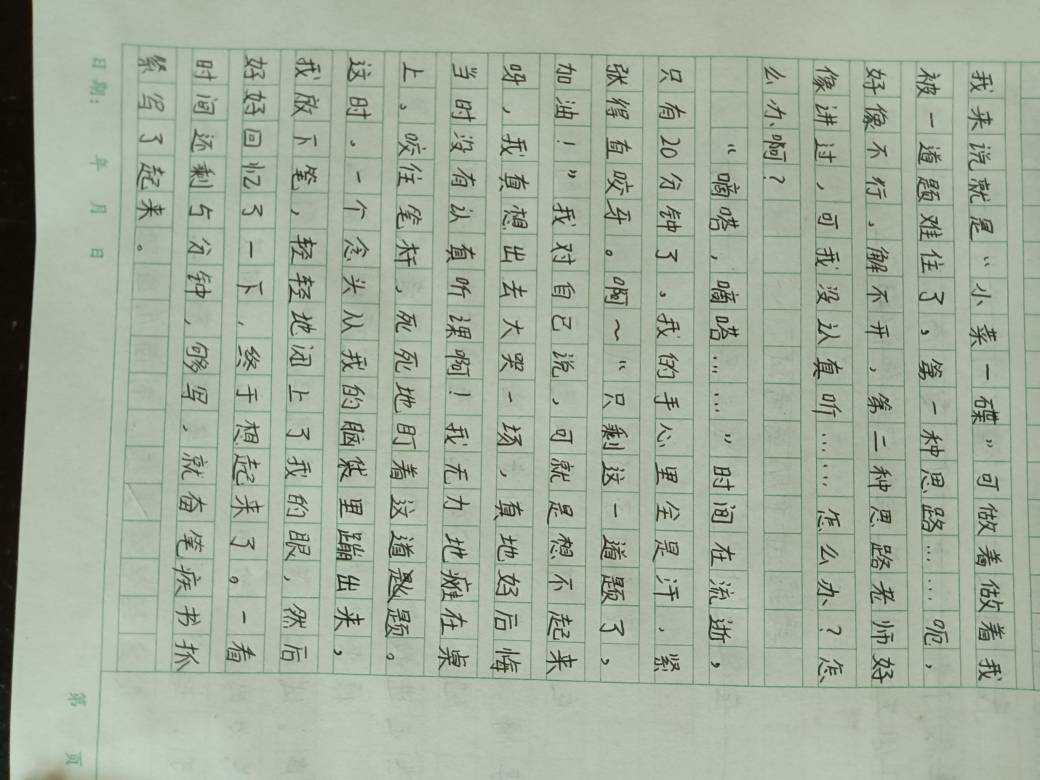 我来说就是“小菜一碟”可做着做着我
被一道题难住了，第一种思路……呃，
好像不行，解不开，第二种思路老师好
像讲过，可我没认真听……怎么办？怎
么办啊？
“嘀嗒，嘀嗒……”时间在流逝，
只有20分钟了，我的手心里全是汗，紧
张得直咬牙。啊～“只剩这一道题了，
加油！”我对自己说，可就是想不起来
呀，我真想出去大哭一场，真地好后悔
当时没有认真听课啊！我无力地瘫在桌
上，咬住笔杆，死死地盯着这道题。
这时。一个念头从我的脑袋里蹦出来，
我放下笔，轻轻地闭上了我的眼，然后
好好回忆了一下，终于想起来了。一看
时间还剩5分钟，够写，就奋笔疾书抓
紧写了起来。
日期： 年 月 日
第 页